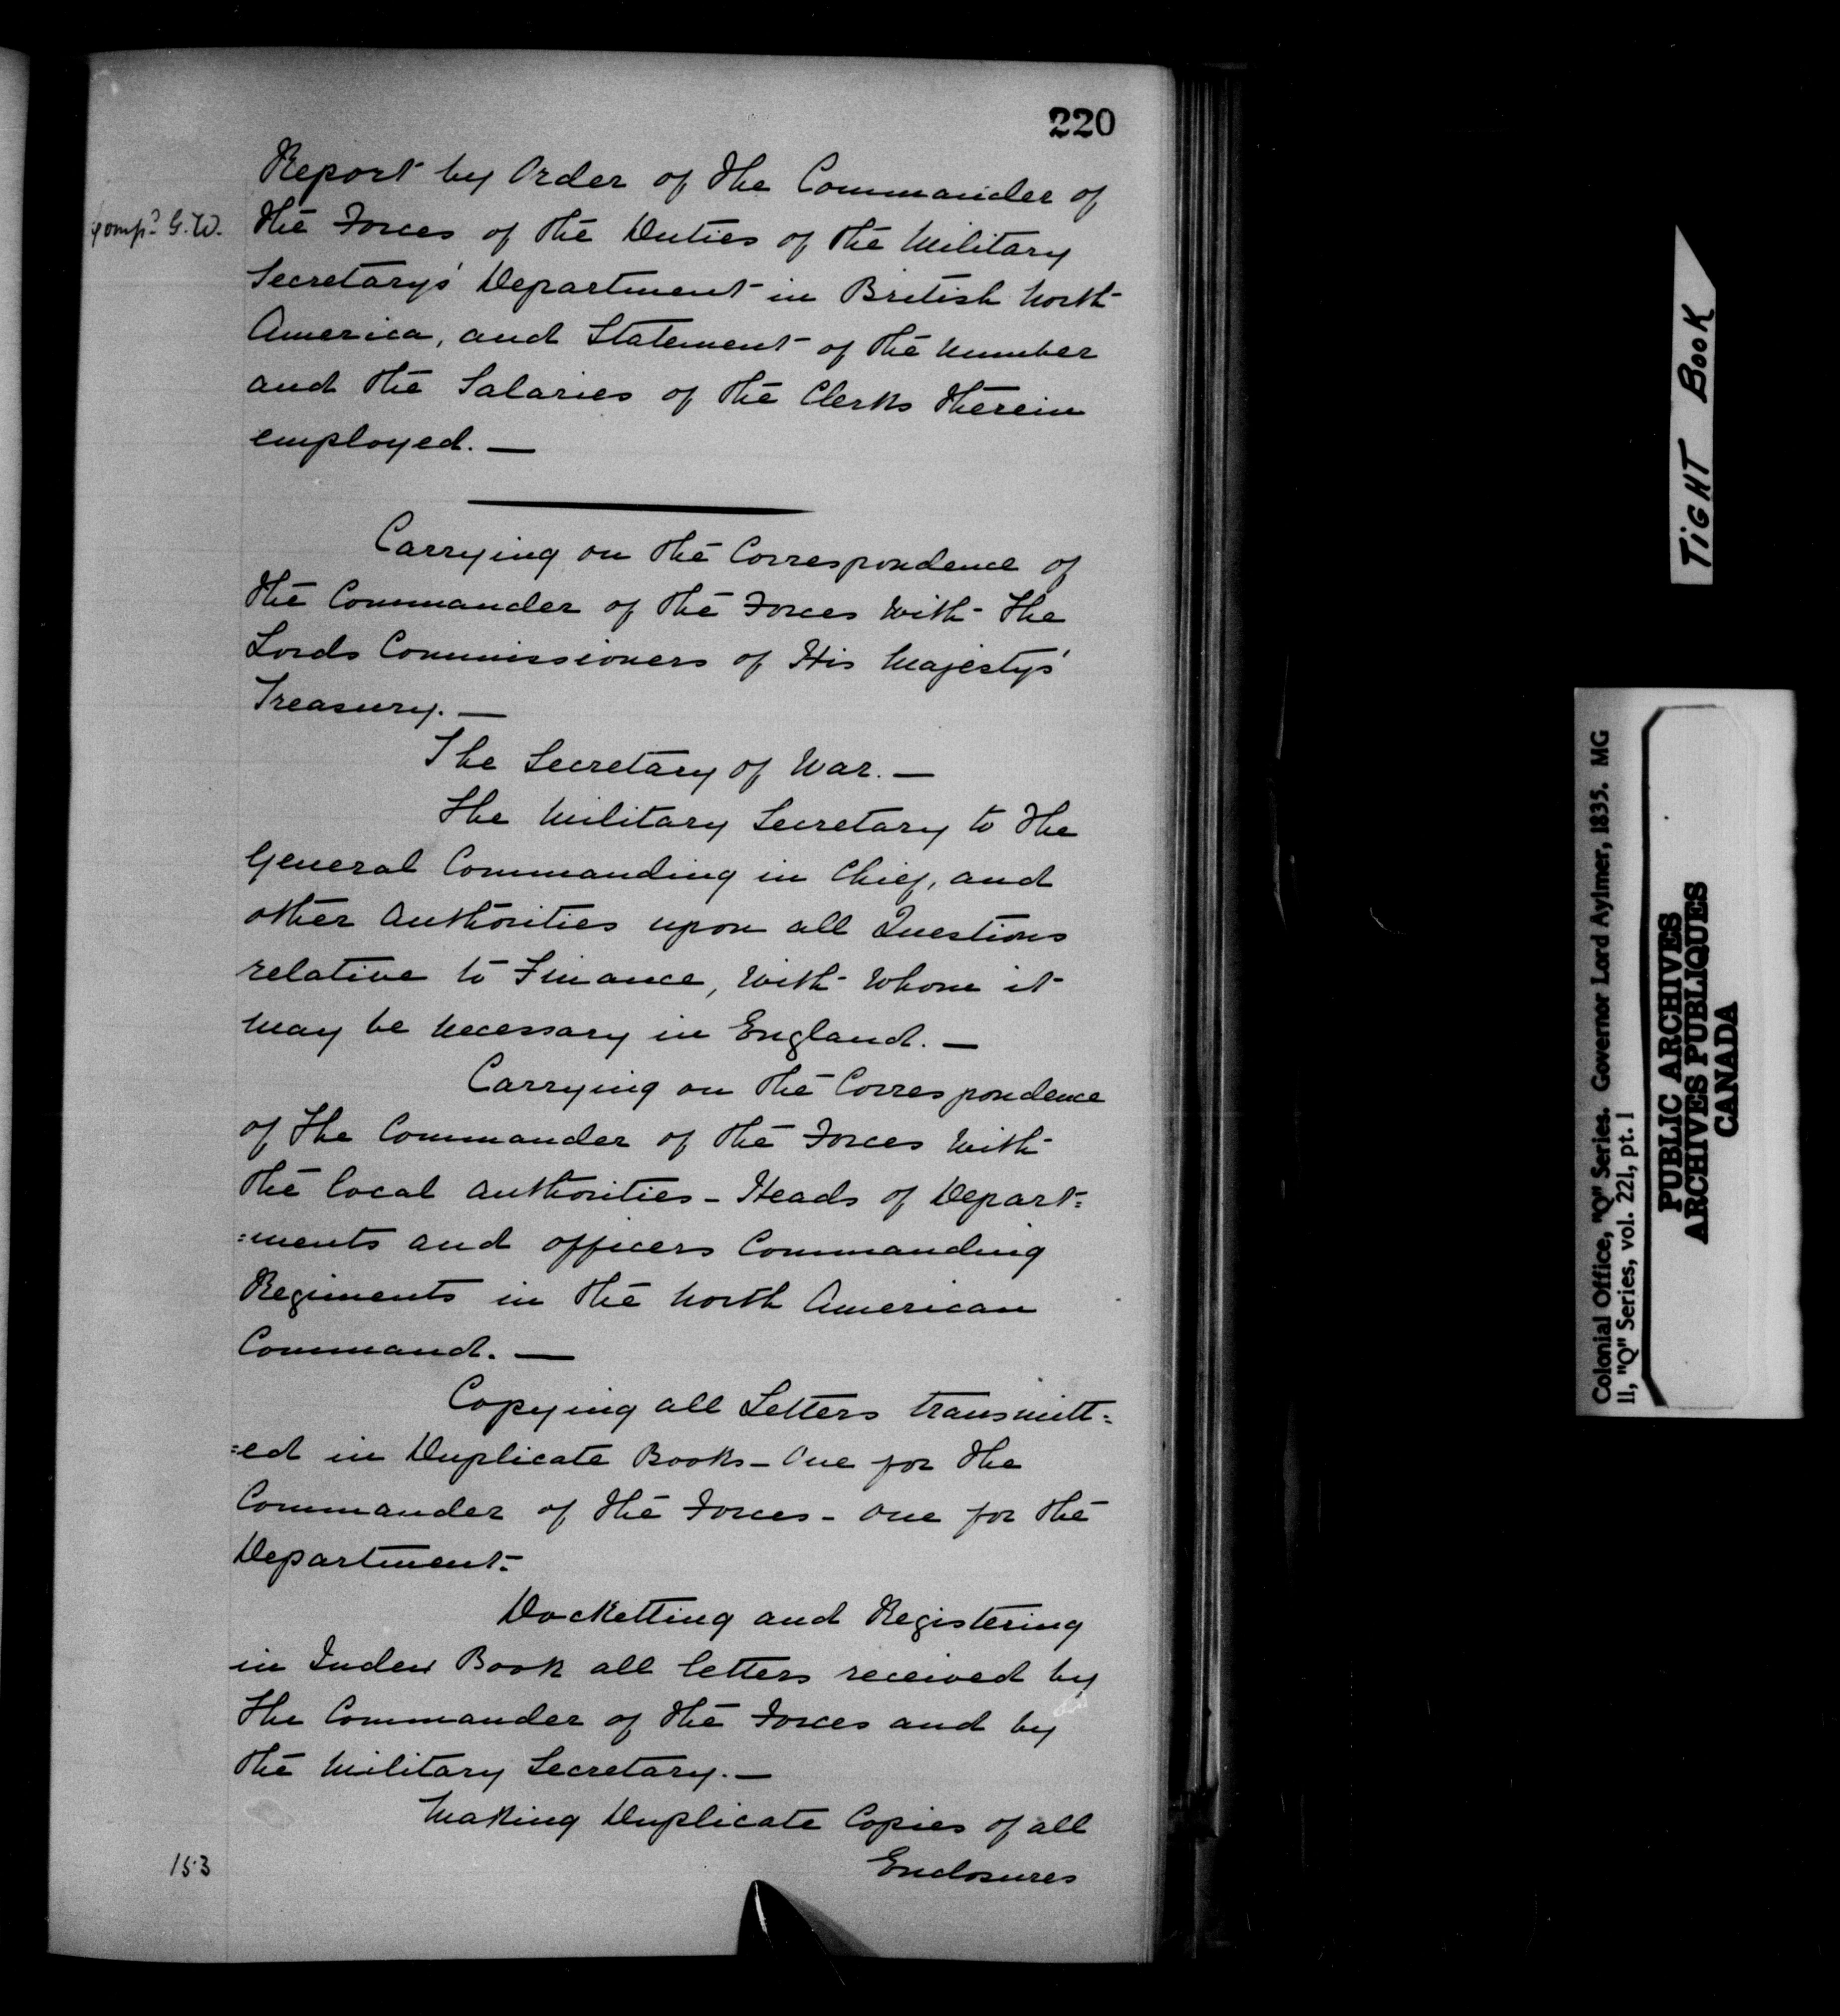 220
Report by Order of the Commander of
G.W.
the Forces of the Duties of the Military
Secretarys' Department in British North
America, and Statement of the number
and the Salaries of the Clerks therein
employed. —
Carrying on the Correspondence of
the Commander of the Forces with the
Lords Commissioners of His Majestys'
Treasury. —
The Secretary of War. —
The Military Secretary to the
General Commanding in Chief, and
other Authorities upon all Questions
relative to Finance, with whom it
may be necessary in England. —
Carrying on the Correspondence
of the Commander of the Forces with
the local authorities - Heads of Depart=
=ments and officers Commanding
Regiments in the North American
Command. —
Copying all Letters transmitt=
=ed in Duplicate Books - One for the
Commander of the Forces - one for the
Department.
Docketting and Registering
in Index Book all letters received by
the Commander of the Forces and by
the Military Secretary. —
Making Duplicate Copies of all
Enclosures
153
TIGHT BOOK
Colonial Office, "Q" Series. Governor Lord Aylmer, 1835. MG
11, "Q" Series, vol. 221, pt. 1
PUBLIC ARCHIVES
ARCHIVES PUBLIQUES
CANADA